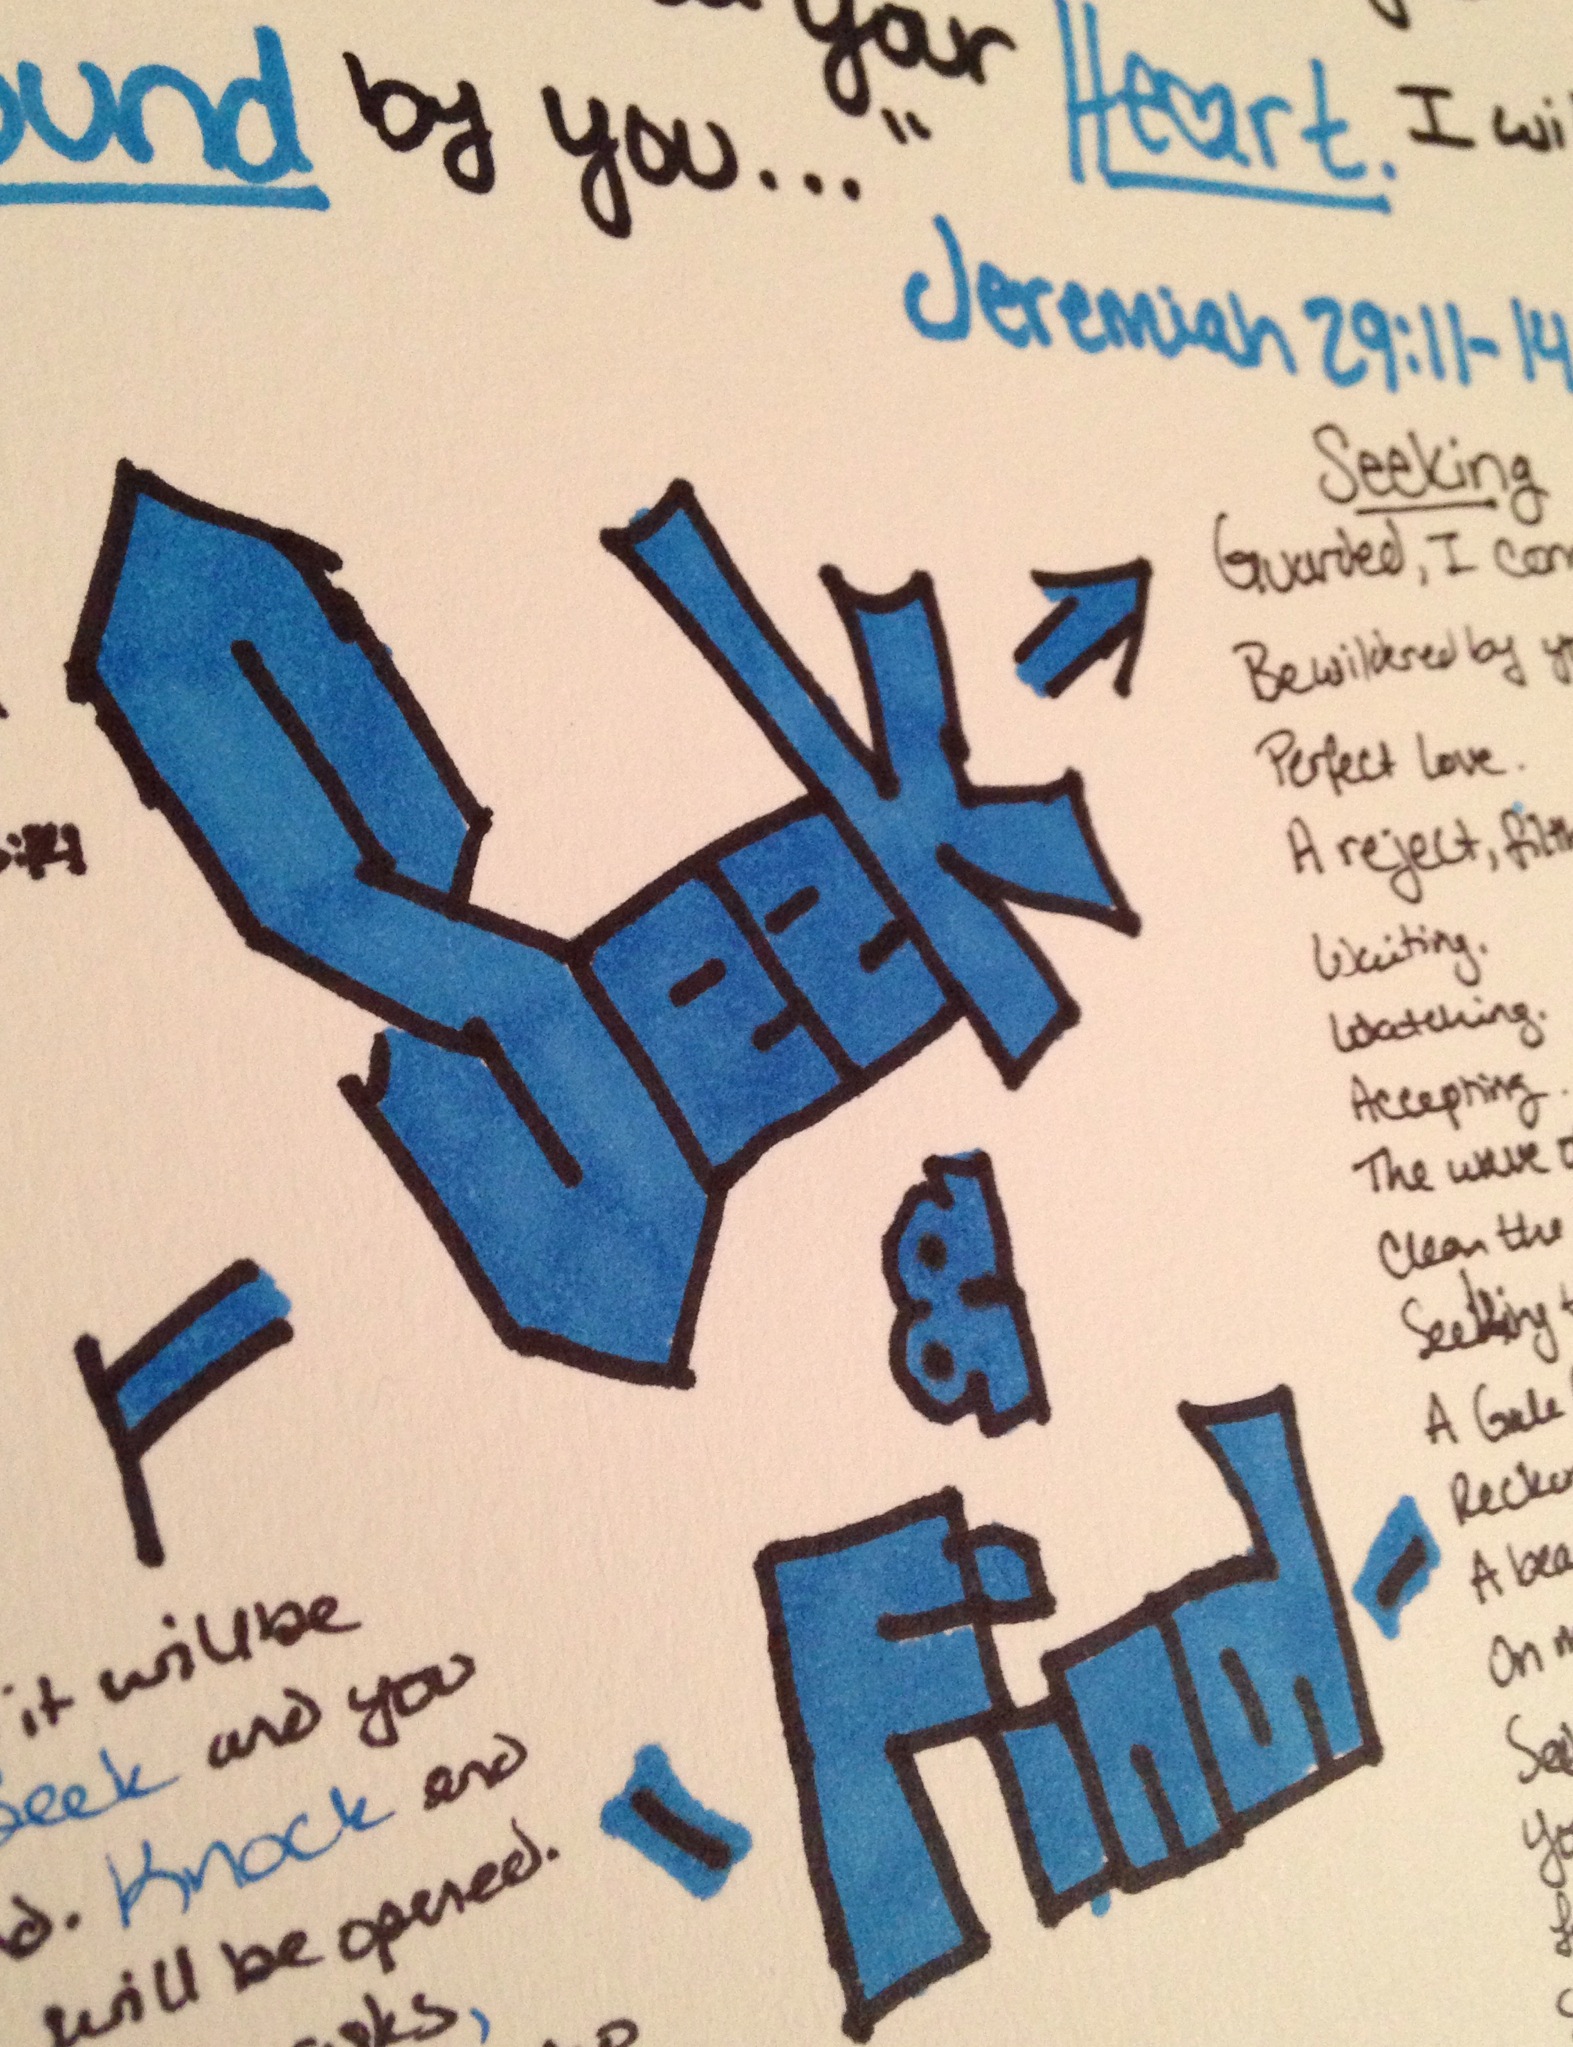 your Heart. I wi
ound by you..."
Jeremiah 29:11-14
Seek
&
Find
Seeking
Guarded, I com
Bewildered by yo
Perfect Love.
A reject, filth
Waiting.
Watching.
Accepting.
The wave o
Clean the
Seeking t
A Gale
Recko
A bea
On m
See
Yo
it will be
Seek and you
d. Knock and
will be opened.
asks,